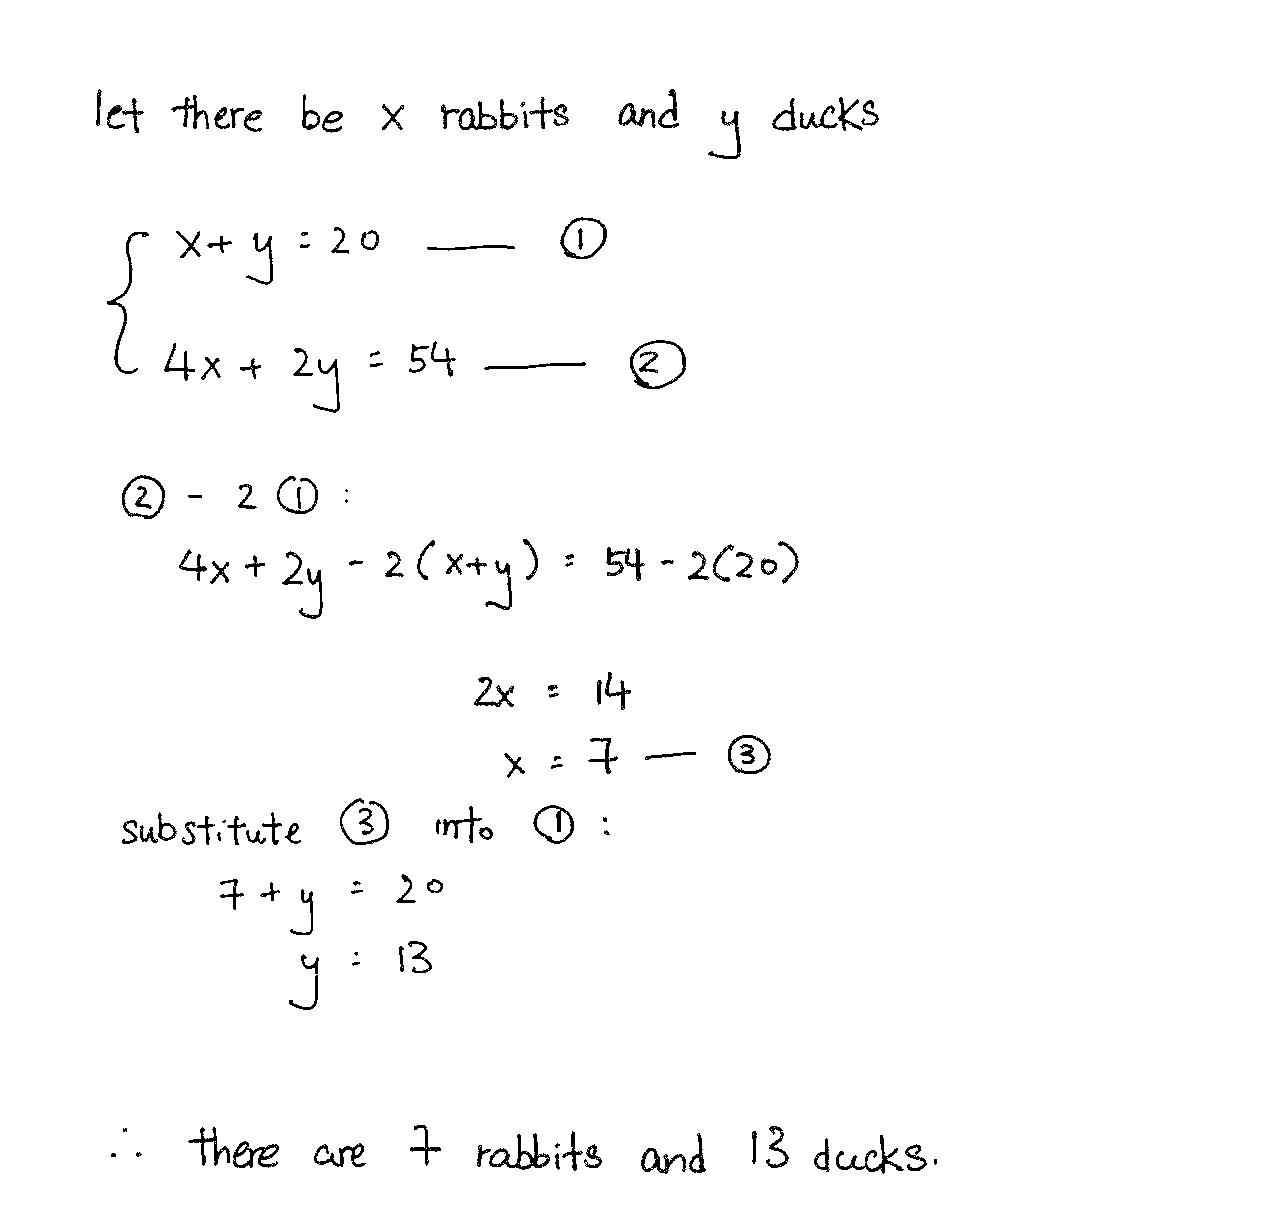 let there be x rabbits and y ducks
x + y = 20 —— ①
4x + 2y = 54 —— ②
② - 2 ① :
4x + 2y - 2(x+y) = 54 - 2(20)
2x = 14
x = 7 — ③
substitute ③ into ① :
7 + y = 20
y = 13
∴ there are 7 rabbits and 13 ducks.